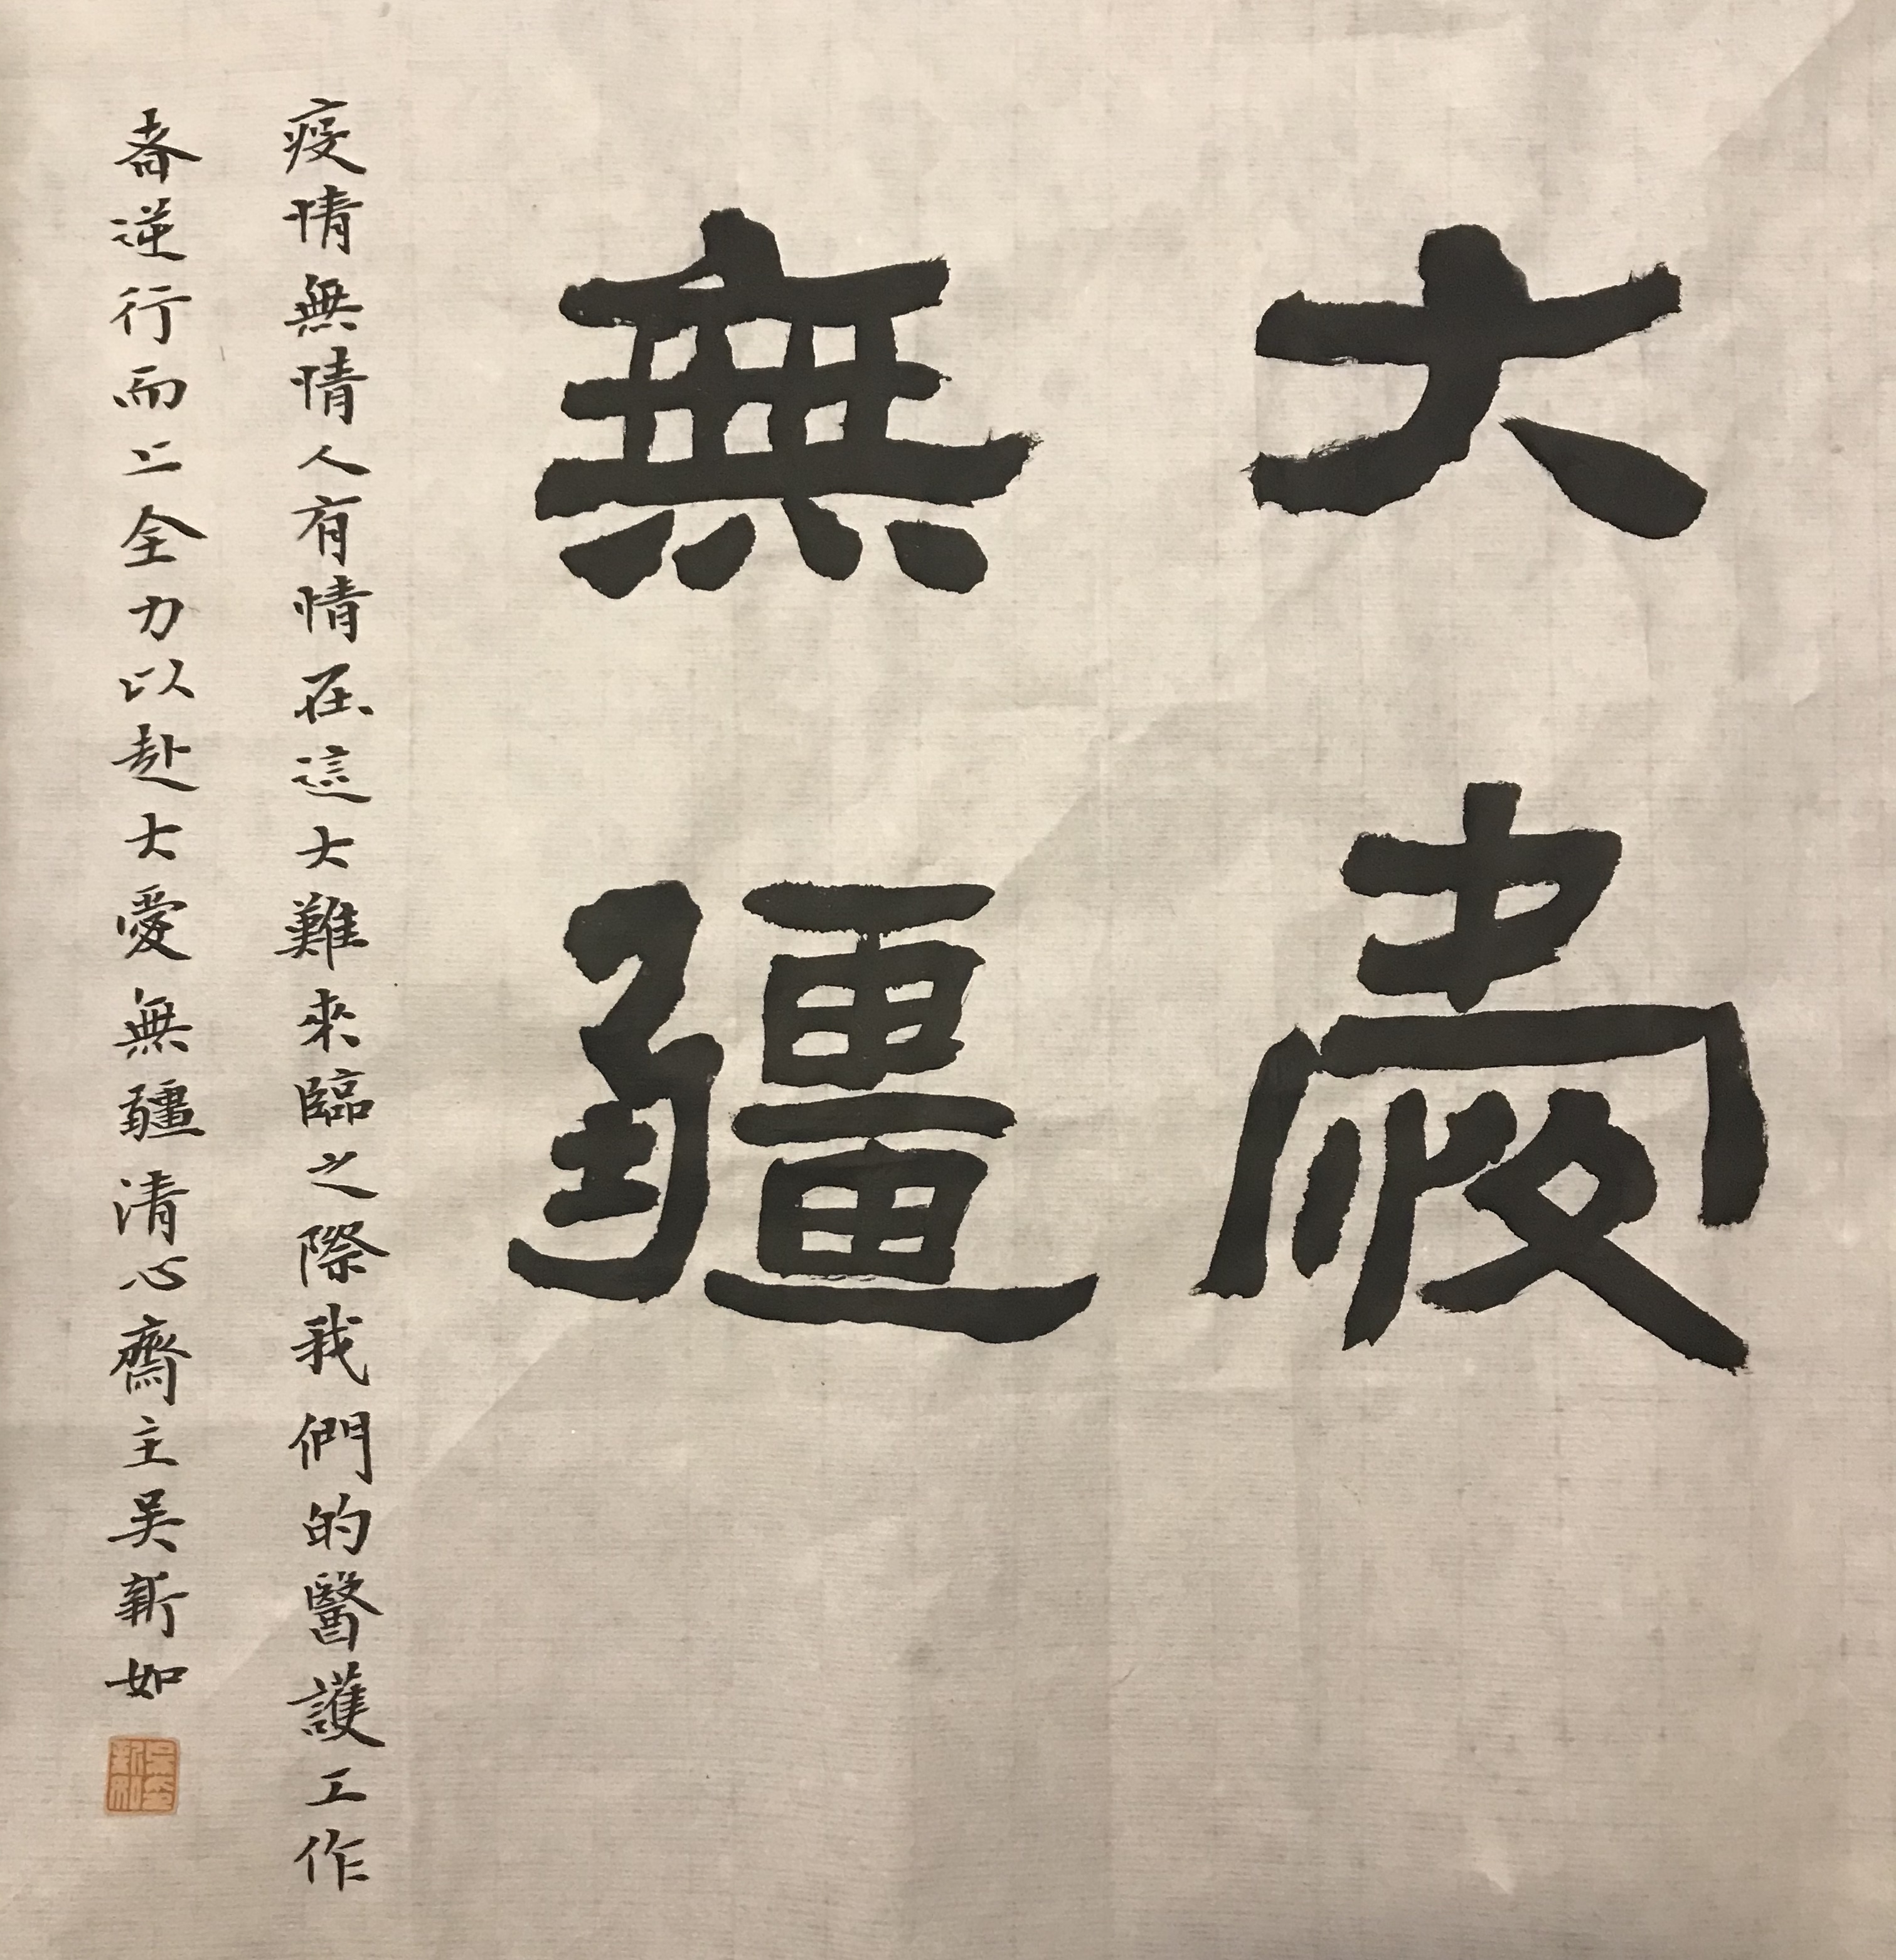 大愛
無疆
疫情無情人有情在這大難來臨之際我們的醫護工作
者逆行而上全力以赴大愛無疆清心齋主吳新如